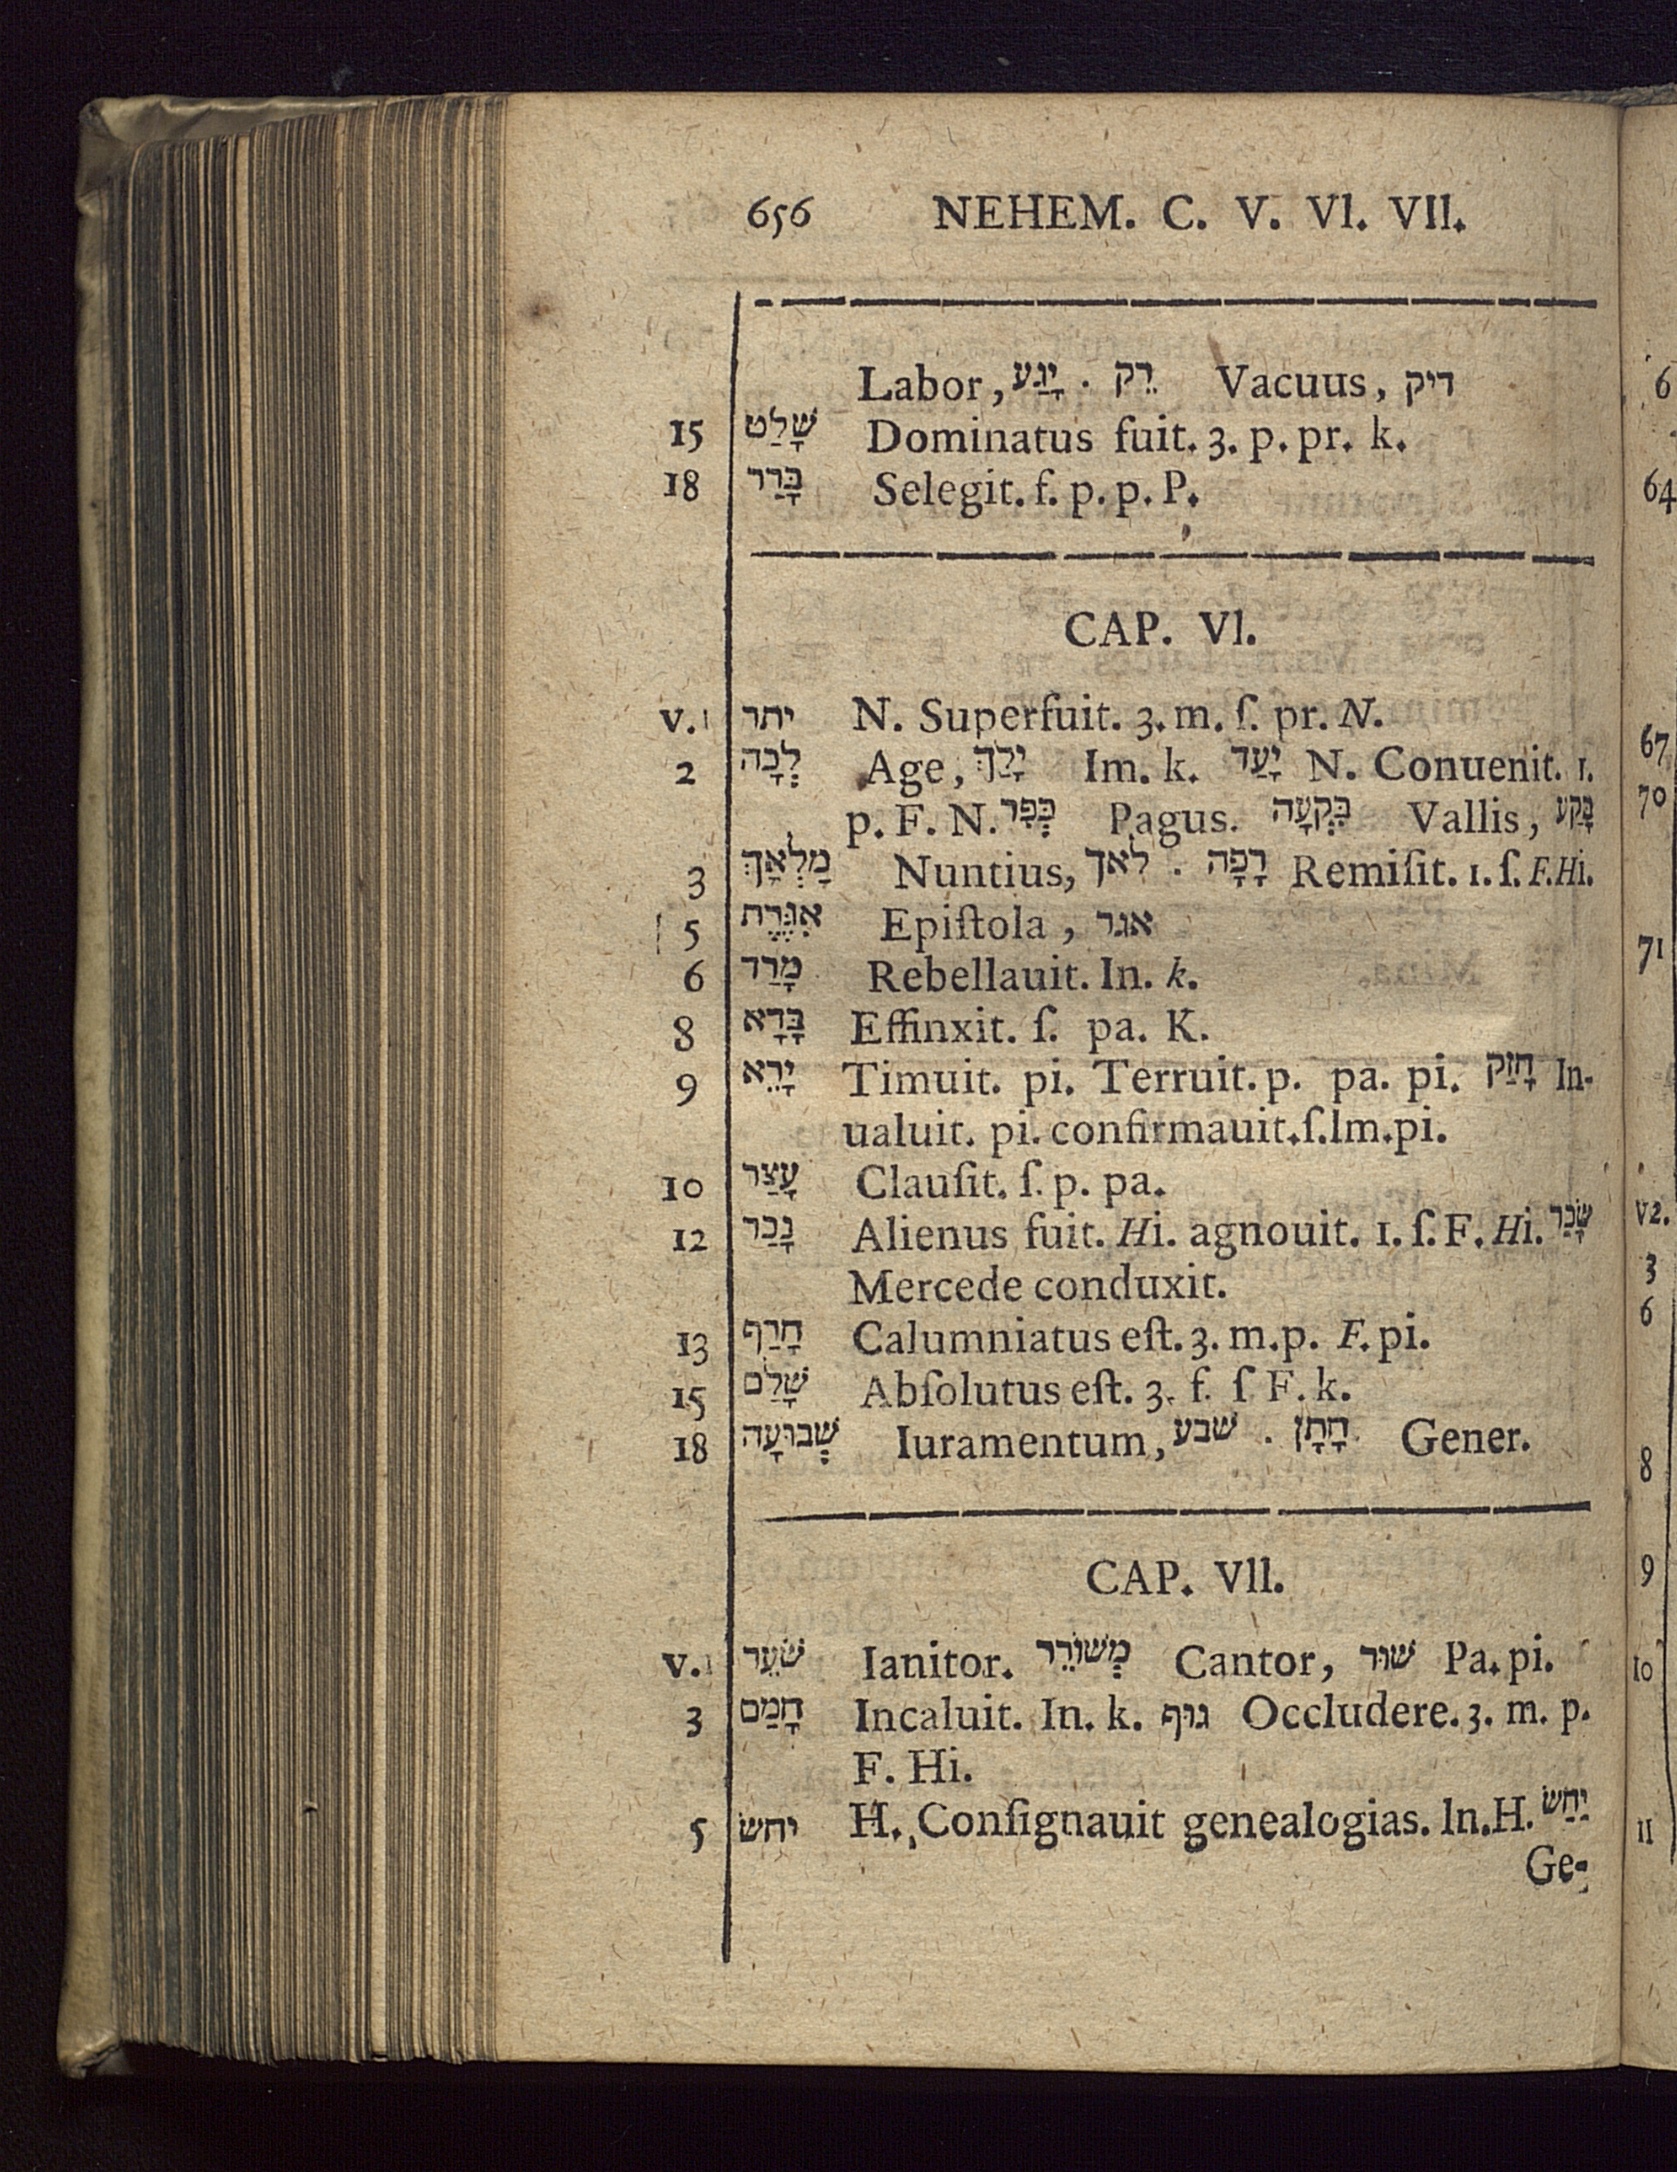 656 NEHEM. C. V. VI. VII.
Labor, יָגַע . רֵק Vacuus, דיק
15 שָׁלַט Dominatus fuit. 3. p. pr. k.
18 בָּרַר Selegit. f. p. p. P.
CAP. VI.
v. 1 יתר N. Superfuit. 3. m. ſ. pr. N.
2 לְכָה Age, יָלַךְ Im. k. יָעַד N. Conuenit. 1.
p. F. N. כְּפָר Pagus. בְּקְעָה Vallis, בָּקַע
3 מַלְאָךְ Nuntius, לאך . רָפָה Remiſit. 1. ſ. F. Hi.
5 אִגֶּרֶת Epiſtola, אגר
6 מָרַד Rebellauit. In. k.
8 בָּדָא Effinxit. ſ. pa. K.
9 יָרֵא Timuit. pi. Terruit. p. pa. pi. חָזַק In-
ualuit. pi. confirmauit. ſ. Im. pi.
10 עָצַר Clauſit. ſ. p. pa.
12 נָכַר Alienus fuit. Hi. agnouit. 1. ſ. F. Hi. שָׂכַר
Mercede conduxit.
13 חָרַף Calumniatus eſt. 3. m. p. F. pi.
15 שָׁלַם Abſolutus eſt. 3. f. ſ F. k.
18 שְׁבוּעָה Iuramentum, שבע . חָתָן Gener.
CAP. VII.
v. 1 שֹׁעֵר Ianitor. מְשׁוֹרֵר Cantor, שׁוּר Pa. pi.
3 חָמַם Incaluit. In. k. גוּף Occludere. 3. m. p.
F. Hi.
5 יחשׂ H. Conſignauit genealogias. In. H. יַחַשׂ
Ge-
6
64
67
70
71
v2.
3
6
8
9
10
11